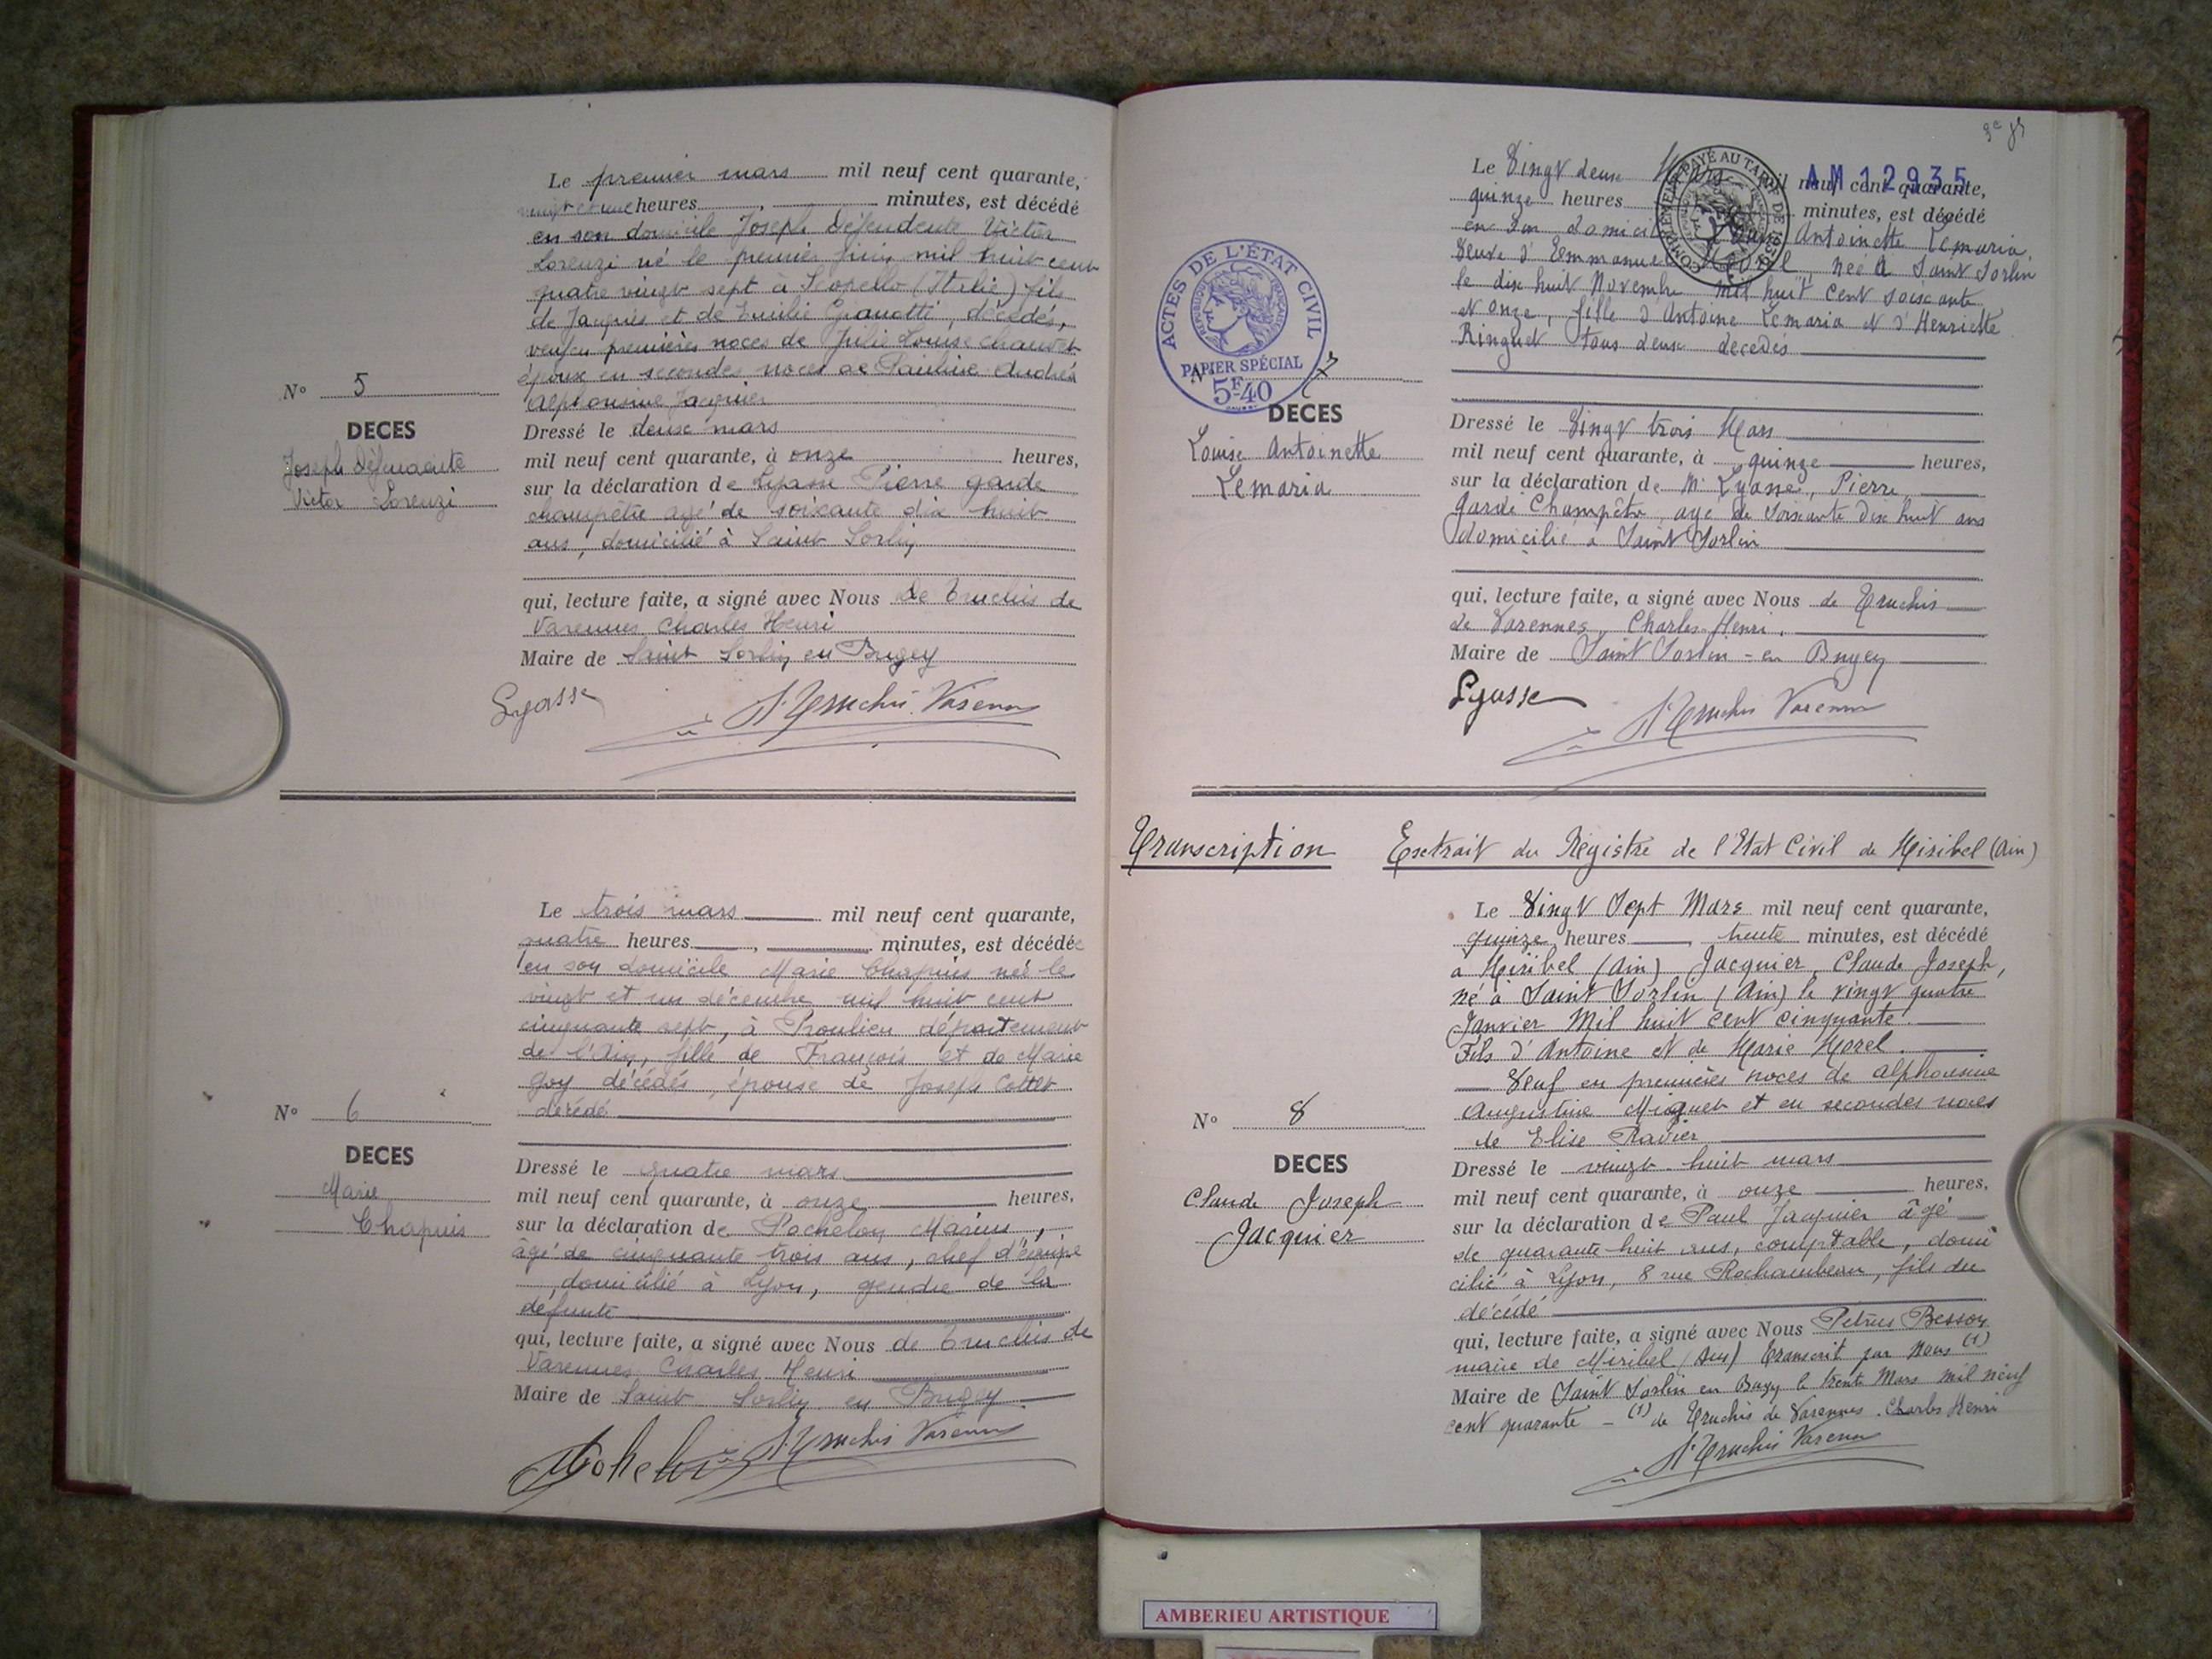 Le premier mars mil neuf cent quarante,
vingt et une heures, minutes, est décédé
en son domicile Joseph Défendente Victor
Lorenzi né le premier juin mil huit cent
quatre vingt sept à Scopello (Italie) fils
de Jacques et de Emilie décédés,
veuf en premières noces de Julie Louise
époux en secondes noces de Pauline Andréa
Alphonsine Jacquier
N° 5
DECES
Joseph Défendente
Victor Lorenzi
Dressé le deux mars
mil neuf cent quarante, à onze heures,
sur la déclaration de Lyasse Pierre garde
champêtre agé de soixante dix huit
ans, domicilié à Saint Sorlin
qui, lecture faite, a signé avec Nous de Truchis de
Varennes Charles Henri
Maire de Saint Sorlin en Bugey
Lyasse
de Truchis Varennes
Le trois mars mil neuf cent quarante,
quatre heures, minutes, est décédée
en son domicile Marie Chapuis née le
vingt et un décembre mil huit cent
cinquante sept, à Proulieu département
de l'Ain, fille de François et de Marie
Goy décédés, épouse de Joseph Cottet
décédé
N° 6
DECES
Marie
Chapuis
Dressé le quatre mars
mil neuf cent quarante, à onze heures,
sur la déclaration de Pochelon Marius,
âgé de cinquante trois ans, chef d'équipe
, domicilié à Lyon, gendre de la
défunte
qui, lecture faite, a signé avec Nous de Truchis de
Varennes Charles Henri
Maire de Saint Sorlin en Bugey
de Truchis Varennes
AM 12935
COMPLÉMENT PAYÉ AU TARIF DE
Le Vingt deux Mars mil neuf cent quarante,
quinze heures minutes, est décédé
en son domicile Antoinette Lemaria,
Veuve d'Emmanuel née à Saint Sorlin
le dix huit Novembre mil huit cent soixante
et onze, fille d'Antoine Lemaria et d'Henriette
Ringuet tous deux décédés
ACTES DE L'ÉTAT CIVIL
RÉPUBLIQUE FRANÇAISE
PAPIER SPÉCIAL
5F40
N° 7
DECES
Louise Antoinette
Lemaria
Dressé le Vingt trois Mars
mil neuf cent quarante, à quinze heures,
sur la déclaration de Mr Lyasse, Pierre
Garde Champêtre, agé de Soixante Dix huit ans
domicilié à Saint Sorlin
qui, lecture faite, a signé avec Nous de Truchis
de Varennes, Charles-Henri.
Maire de Saint Sorlin-en Bugey
Lyasse
de Truchis Varennes
Transcription Extrait du Registre de l'Etat Civil de Miribel (Ain)
Le Vingt Sept Mars mil neuf cent quarante,
quinze heures, trente minutes, est décédé
à Miribel (Ain) Jacquier, Claude Joseph,
né à Saint Sorlin (Ain) le vingt quatre
Janvier Mil huit cent cinquante.
Fils d'Antoine et de Marie Morel.
Veuf en premières noces de Alphonsine
Augustine Miquet et en secondes noces
de Elise Ravier
N° 8
DECES
Claude Joseph
Jacquier
Dressé le vingt huit mars
mil neuf cent quarante, à onze heures,
sur la déclaration de Paul Jacquier âgé
de quarante-huit ans, comptable, domi
cilié à Lyon, 8 rue Rochambeau, fils du
décédé
qui, lecture faite, a signé avec Nous Petrus Besson
maire de Miribel (Ain) Transcrit par Nous (1)
Maire de Saint Sorlin en Bugey le trente Mars mil neuf
cent quarante - (1) de Truchis de Varennes Charles Henri
de Truchis Varennes
AMBERIEU ARTISTIQUE